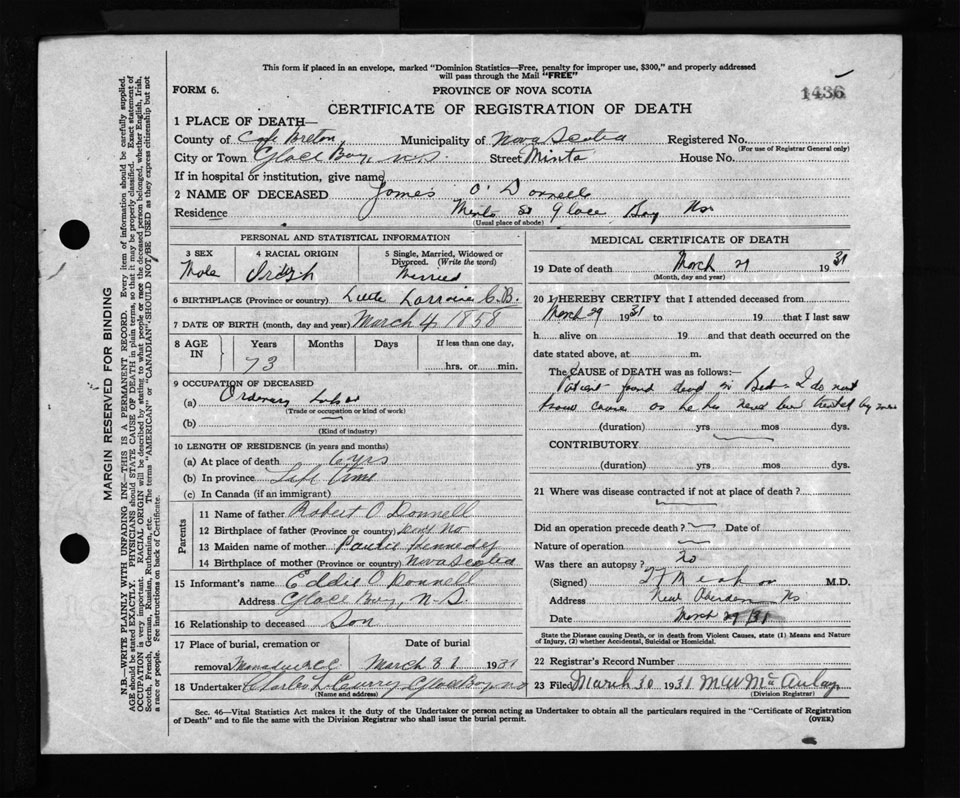 This form if placed in an envelope, marked "Dominion Statistics—Free, penalty for improper use, $300," and properly addressed
will pass through the Mail "FREE"
FORM 6.
PROVINCE OF NOVA SCOTIA
1436
CERTIFICATE OF REGISTRATION OF DEATH
1 PLACE OF DEATH—
County of Cape Breton, Municipality of Nova Scotia Registered No.
(For use of Registrar General only)
City or Town Glace Bay, N.S. Street Minto House No.
If in hospital or institution, give name
2 NAME OF DECEASED James O'Donnell
Residence Minto St Glace Bay Ns
(Usual place of abode)
PERSONAL AND STATISTICAL INFORMATION
3 SEX 4 RACIAL ORIGIN 5 Single, Married, Widowed or
Divorced. (Write the word)
Male Irish Married
6 BIRTHPLACE (Province or country) Little Lorraine C.B.
7 DATE OF BIRTH (month, day and year) March 4 1858
8 AGE IN Years Months Days If less than one day,
73 hrs. or min.
9 OCCUPATION OF DECEASED
(a) Ordinary Labor
(Trade or occupation or kind of work)
(b)
(Kind of industry)
10 LENGTH OF RESIDENCE (in years and months)
(a) At place of death 6 yrs
(b) In province Life Time
(c) In Canada (if an immigrant)
Parents
11 Name of father Robert O Donnell
12 Birthplace of father (Province or country)
13 Maiden name of mother Kennedy
14 Birthplace of mother (Province or country) Nova Scotia
15 Informant's name Eddie O Donnell
Address Glace Bay, N.S.
16 Relationship to deceased Son
17 Place of burial, cremation or Date of burial
removal March 31 1931
18 Undertaker Charles L Curry Glace Bay
(Name and address)
MEDICAL CERTIFICATE OF DEATH
19 Date of death March 29 1931
(Month, day and year)
20 I HEREBY CERTIFY that I attended deceased from
March 29 1931 to 19 that I last saw
h alive on 19 and that death occurred on the
date stated above, at m.
The CAUSE of DEATH was as follows:—
Patient found dead in Bed - I do not
know cause as he has never been treated by me
(duration) yrs mos dys.
CONTRIBUTORY
(duration) yrs mos dys.
21 Where was disease contracted if not at place of death?
Did an operation precede death? Date of
Nature of operation
Was there an autopsy? No
(Signed) M.D.
Address New Aberdeen Ns
Date March 29/31
State the Disease causing Death, or in death from Violent Causes, state (1) Means and Nature
of Injury, (2) whether Accidental, Suicidal or Homicidal.
22 Registrar's Record Number
23 Filed March 30 1931 M W McAulay
(Division Registrar)
Sec. 46—Vital Statistics Act makes it the duty of the Undertaker or person acting as Undertaker to obtain all the particulars required in the "Certificate of Registration
of Death" and to file the same with the Division Registrar who shall issue the burial permit.
(OVER)
MARGIN RESERVED FOR BINDING
N.B.—WRITE PLAINLY WITH UNFADING INK—THIS IS A PERMANENT RECORD. Every item of information should be carefully supplied.
AGE should be stated EXACTLY. PHYSICIANS should STATE CAUSE OF DEATH in plain terms, so that it may be properly classified. Exact statement of
OCCUPATION is very important. RACIAL ORIGIN will be described by stating to what people or race the deceased person belonged, whether English, Irish,
Scotch, French, German, Russian, Ruthenian, etc. The terms "AMERICAN" or "CANADIAN" SHOULD NOT BE USED as they express citizenship but not
a race or people. See instructions on back of Certificate.